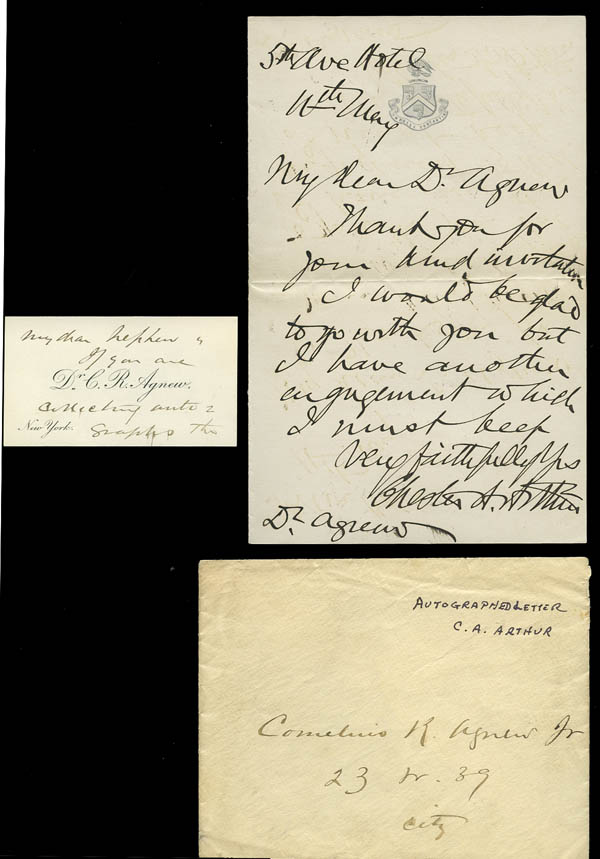 5th Ave Hotel
11th May
My dear Dr Agnew
Thank you for
your kind invitation
I would be glad
to go with you but
I have another
engagement which
I must keep
Very faithfully Yrs
Chester A. Arthur
Dr. Agnew
My dear nephew
If you are
Dr. C. R. Agnew.
collecting auto=
New York.
graphs the
AUTOGRAPHED LETTER
C. A. ARTHUR
Cornelius R. Agnew Jr
23 W. 39
City